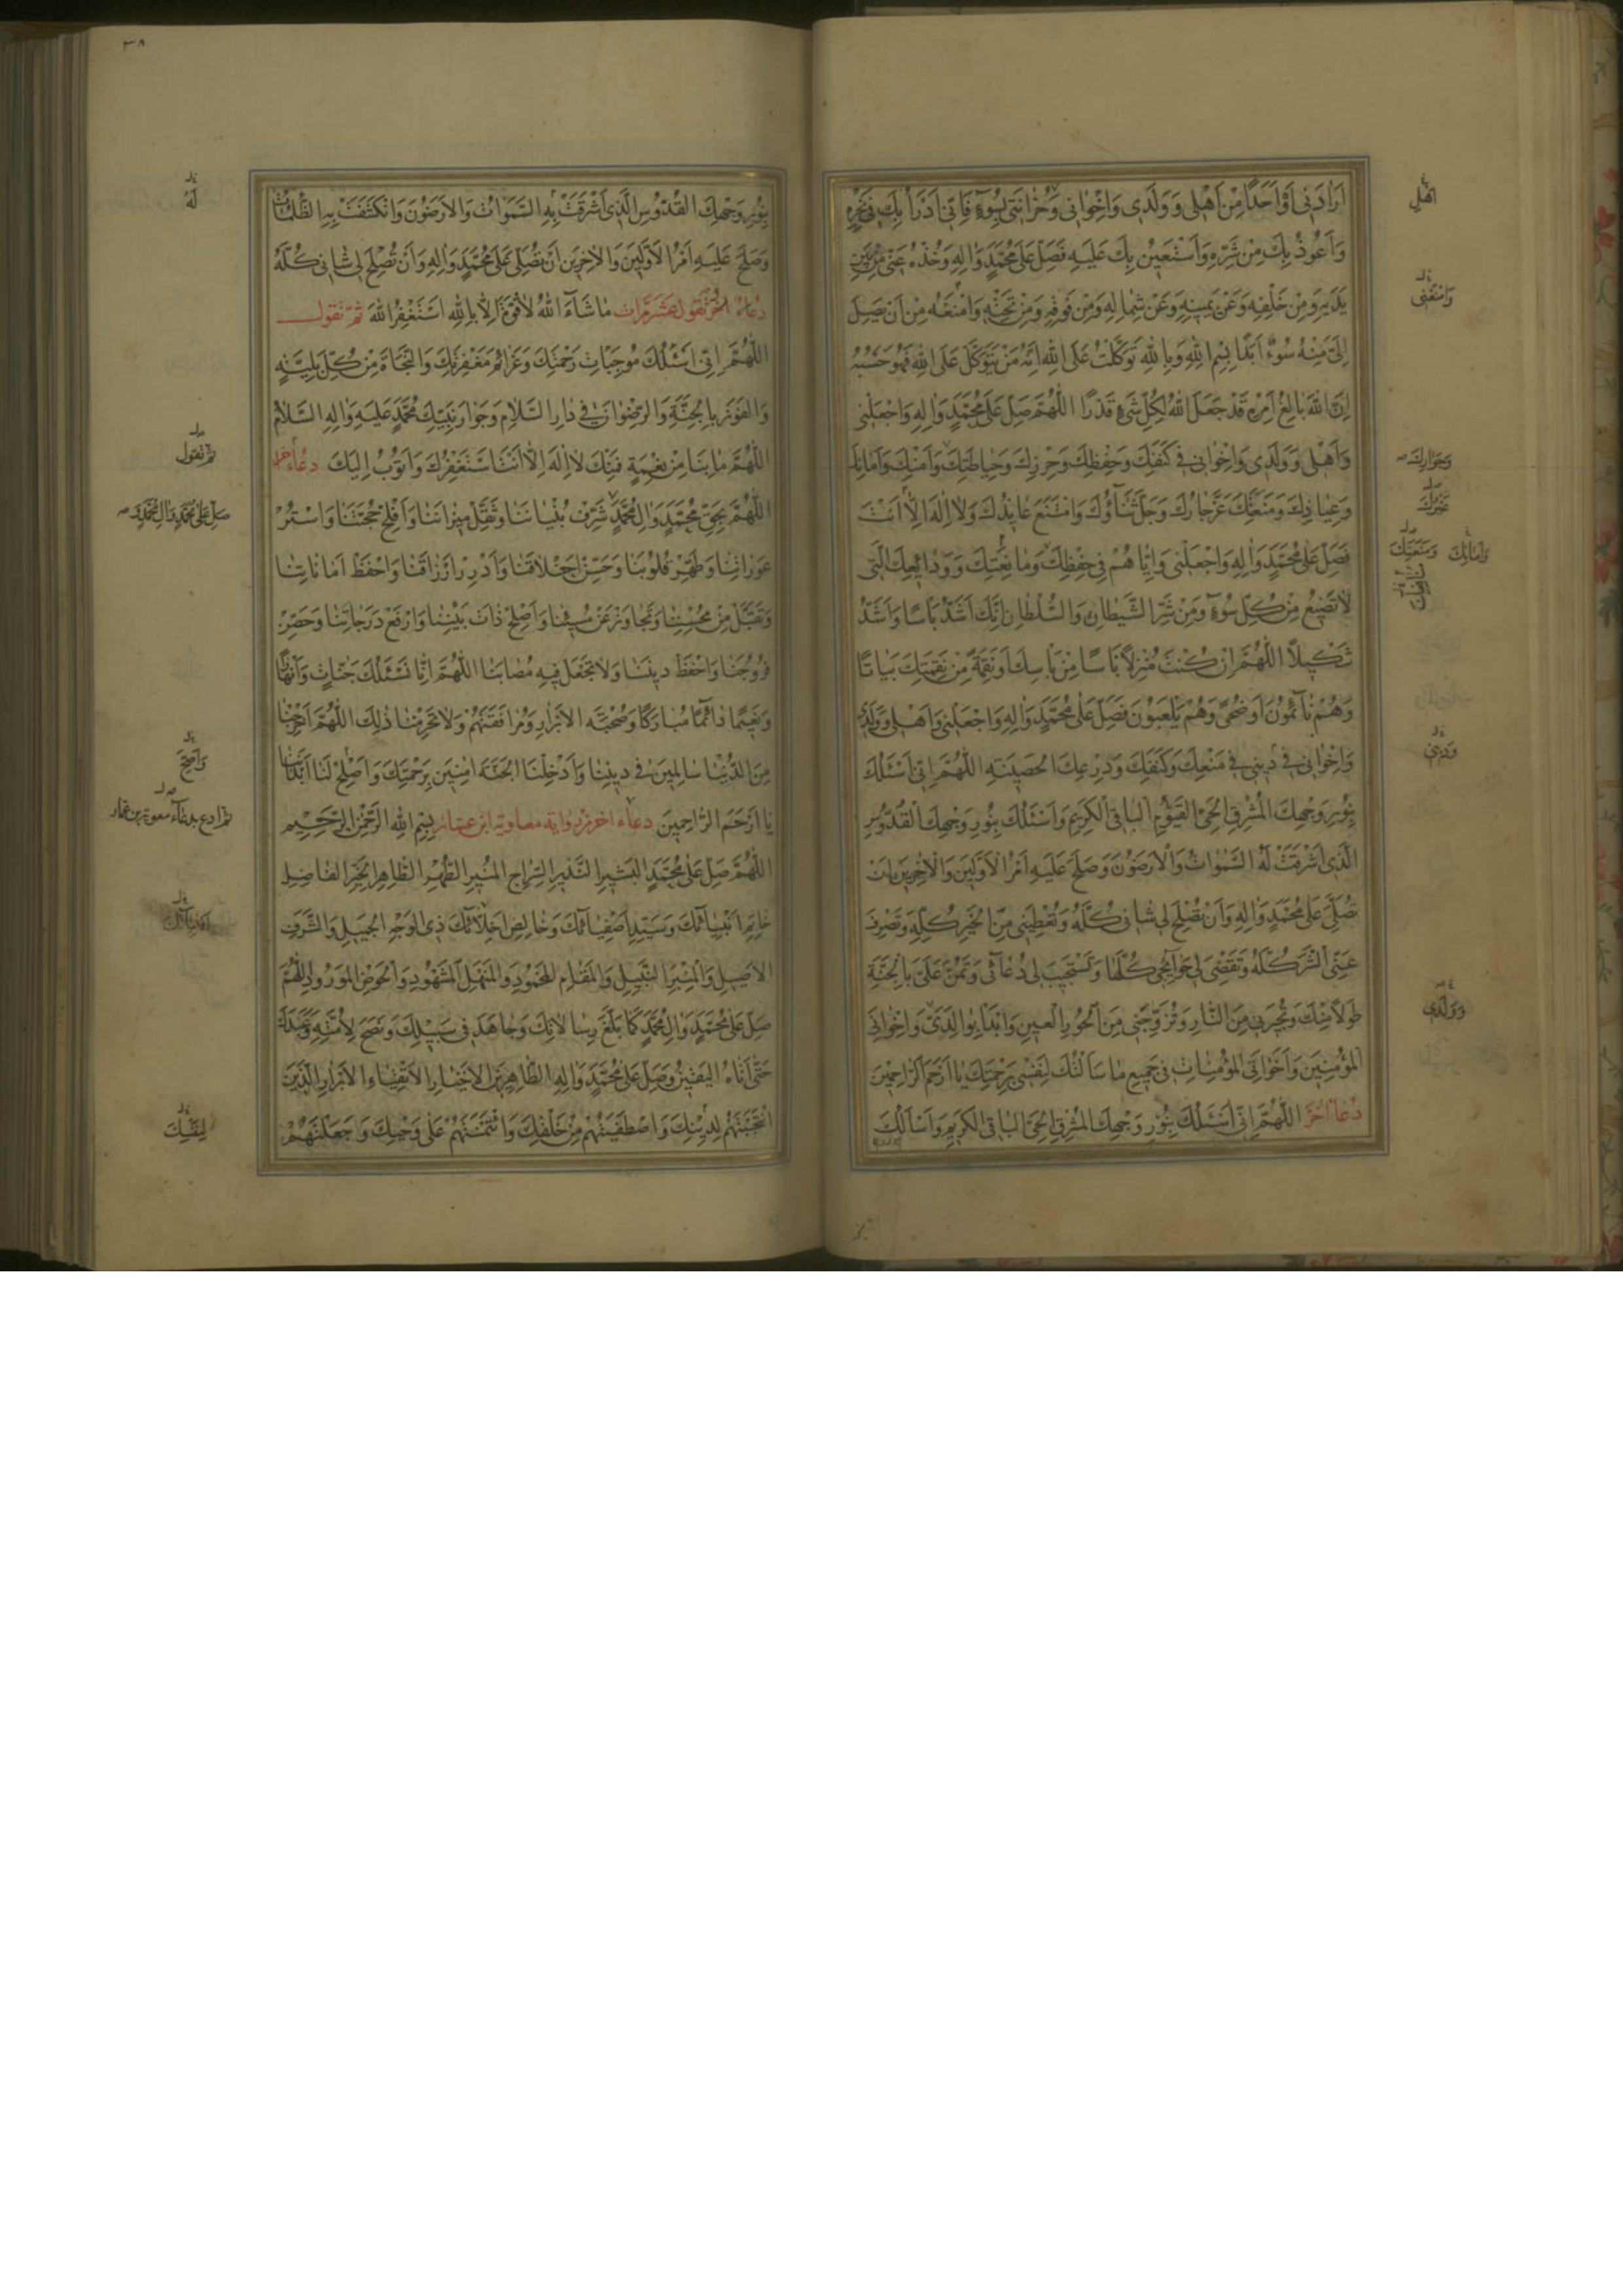 اَرادَنى اَوْ اَحَدًا مِنْ اَهْلى وَ وَلَدى وَاِخْوانى وَحُزانَتى بِسُوءٍ فَاِنّى اَدْرَأُ بِكَ فى نَحْرِهِ
وَاَعُوذُ بِكَ مِنْ شَرِّهِ وَاَسْتَعينُ بِكَ عَلَيْهِ فَصَلِّ عَلى مُحَمَّدٍ وَالِهِ وَخُذْهُ عَنّى مِنْ بَيْنِ
يَدَيْهِ وَمِنْ خَلْفِهِ وَعَنْ يَمينِهِ وَعَنْ شِمالِهِ وَمِنْ فَوْقِهِ وَمِنْ تَحْتِهِ وَامْنَعْهُ مِنْ اَنْ يَصِلَ
اِلَىَّ مِنْهُ سُوءٌ اَبَدًا بِسْمِ اللهِ وَبِاللهِ تَوَكَّلْتُ عَلَى اللهِ اِنَّهُ مَنْ يَتَوَكَّلْ عَلَى اللهِ فَهُوَ حَسْبُهُ
اِنَّ اللهَ بالِغُ اَمْرِهِ قَدْ جَعَلَ اللهُ لِكُلِّ شَىْءٍ قَدْرًا اللّهُمَّ صَلِّ عَلى مُحَمَّدٍ وَالِهِ وَاجْعَلْنى
وَاَهْلى وَ وَلَدى وَاِخْوانى فى كَنَفِكَ وَحِفْظِكَ وَحِرْزِكَ وَحِياطَتِكَ وَاَمْنِكَ وَاَمانِكَ
وَعِياذِكَ وَمَنْعِكَ عَزَّ جارُكَ وَجَلَّ ثَناؤُكَ وَامْتَنَعَ عائِذُكَ وَلا اِلهَ اِلّا اَنْتَ
فَصَلِّ عَلى مُحَمَّدٍ وَالِهِ وَاجْعَلْنى وَاِيّاهُمْ فى حِفْظِكَ وَمانِعَتِكَ وَ وَدائِعِكَ الَّتى
لا تَضيعُ مِنْ كُلِّ سُوءٍ وَمِنْ شَرِّ الشَّيْطانِ وَالسُّلْطانِ اِنَّكَ اَشَدُّ بَأْسًا وَاَشَدُّ
تَنْكيلًا اللّهُمَّ اِنْ كُنْتَ مُنْزِلًا بَأْسًا مِنْ بَأْسِكَ اَوْ نَقِمَةً مِنْ نَقِمَتِكَ بَياتًا
وَهُمْ نائِمُونَ اَوْ ضُحىً وَهُمْ يَلْعَبُونَ فَصَلِّ عَلى مُحَمَّدٍ وَالِهِ وَاجْعَلْنى وَاَهْلى وَ وَلَدى
وَاِخْوانى فى دينى فى مَنْعِكَ وَكَنَفِكَ وَدِرْعِكَ الحَصينَةِ اللّهُمَّ اِنّى اَسْئَلُكَ
بِنُورِ وَجْهِكَ المُشْرِقِ الحَىِّ القَيُّومِ الباقِى الكَريمِ وَاَسْئَلُكَ بِنُورِ وَجْهِكَ القُدُّوسِ
الَّذى اَشْرَقَتْ لَهُ السَّمواتُ وَالاَرَضُونَ وَصَلَحَ عَلَيْهِ اَمْرُ الاَوَّلينَ وَالاخِرينَ اَنْ
تُصَلِّىَ عَلى مُحَمَّدٍ وَالِهِ وَاَنْ تُصْلِحَ لى شانى كُلَّهُ وَتُعْطِيَنى مِنَ الخَيْرِ كُلِّهِ وَتَصْرِفَ
عَنّى الشَّرَّ كُلَّهُ وَتَقْضِىَ لى حَوائِجى كُلَّها وَتَسْتَجيبَ لى دُعائى وَتَمُنَّ عَلَىَّ بِالجَنَّةِ
طَوْلًا مِنْكَ وَتُجيرَنى مِنَ النّارِ وَتُزَوِّجَنى مِنَ الحُورِ العينِ وَابْدَأْ بِوالِدَىَّ وَاِخْوانِىَ
المُؤْمِنينَ وَاَخَواتِىَ المُؤْمِناتِ فى جَميعِ ما سَاَلْتُكَ لِنَفْسى بِرَحْمَتِكَ يا اَرْحَمَ الرّاحِمينَ
دُعاءٌ اخَرُ اللّهُمَّ اِنّى اَسْئَلُكَ بِنُورِ وَجْهِكَ المُشْرِقِ الحَىِّ الباقِى الكَريمِ وَاَسْاَلُكَ
اَهْلِ
وَامْنَعْنى
وَجِوارِكَ
وَاَمانِكَ وَمَنَعَتِكَ
وَ وَلَدى
٣٨
بِنُورِ وَجْهِكَ القُدُّوسِ الَّذى اَشْرَقَتْ بِهِ السَّمَواتُ وَالاَرَضُونَ وَانْكَشَفَتْ بِهِ الظُّلُماتُ
وَصَلَحَ عَلَيْهِ اَمْرُ الاَوَّلينَ وَالاخِرينَ اَنْ تُصَلِّىَ عَلى مُحَمَّدٍ وَالِهِ وَاَنْ تُصْلِحَ لى شانى كُلَّهُ
دُعاءٌ اخَرُ تَقُولُ عَشْرَ مَرّاتٍ ما شاءَ اللهُ لا قُوَّةَ اِلّا بِاللهِ اَسْتَغْفِرُ اللهَ ثُمَّ تَقُولُ
اللّهُمَّ اِنّى اَسْئَلُكَ مُوجِباتِ رَحْمَتِكَ وَعَزائِمَ مَغْفِرَتِكَ وَالنَّجاةَ مِنْ كُلِّ بَلِيَّةٍ
وَالفَوْزَ بِالجَنَّةِ وَالرِّضْوانَ فى دارِ السَّلامِ وَجِوارَ نَبِيِّكَ مُحَمَّدٍ عَلَيْهِ وَالِهِ السَّلامُ
اللّهُمَّ ما بِنا مِنْ نِعْمَةٍ فَمِنْكَ لا اِلهَ اِلّا اَنْتَ اَسْتَغْفِرُكَ وَاَتُوبُ اِلَيْكَ دُعاءٌ اخَرُ
اللّهُمَّ بِحَقِّ مُحَمَّدٍ وَالِ مُحَمَّدٍ شَرِّفْ بُنْيانَنا وَثَقِّلْ ميزانَنا وَاَفْلِحْ حُجَّتَنا وَاسْتُرْ
عَوْراتِنا وَطَهِّرْ قُلُوبَنا وَحَسِّنْ اَخْلاقَنا وَاَدْرِرْ اَرْزاقَنا وَاحْفَظْ اَماناتِنا
وَتَقَبَّلْ مِنْ مُحْسِنِنا وَتَجاوَزْ عَنْ مُسيئِنا وَاَصْلِحْ ذاتَ بَيْنِنا وَارْفَعْ دَرَجاتِنا وَحَصِّنْ
فُرُوجَنا وَاحْفَظْ دينَنا وَلا تَجْعَلْ فيهِ مُصابَنا اللّهُمَّ اِنّا نَسْئَلُكَ جَنّاتٍ وَاَنْهارًا
وَنَعيمًا دائِمًا مُبارَكًا وَصُحْبَةَ الاَبْرارِ وَمُرافَقَتَهُمْ وَلا تَحْرِمْنا ذلِكَ اللّهُمَّ اَخْرِجْنا
مِنَ الدُّنْيا سالِمينَ فى دينِنا وَاَدْخِلْنَا الجَنَّةَ امِنينَ بِرَحْمَتِكَ وَاَصْلِحْ لَنا اَبْدانَنا
يا اَرْحَمَ الرّاحِمينَ دعاء اخر بروايه معاوية ابن عمار بِسْمِ اللهِ الرَّحْمنِ الرَّحيمِ
اللّهُمَّ صَلِّ عَلى مُحَمَّدٍ البَشيرِ النَّذيرِ السِّراجِ المُنيرِ الطُّهْرِ الطّاهِرِ الخَيْرِ الفاضِلِ
خاتِمِ اَنْبِيائِكَ وَسَيِّدِ اَصْفِيائِكَ وَخالِصِ اَخِلّائِكَ ذِى الوَجْهِ الجَميلِ وَالشَّرَفِ
الاَصيلِ وَالمِنْبَرِ النَّبيلِ وَالمَقامِ المَحْمُودِ وَالمَنْهَلِ المَشْهُودِ وَالحَوْضِ المَوْرُودِ اللّهُمَّ
صَلِّ عَلى مُحَمَّدٍ وَالِ مُحَمَّدٍ كَما بَلَّغَ رِسالاتِكَ وَجاهَدَ فى سَبيلِكَ وَنَصَحَ لِاُمَّتِهِ وَعَبَدَكَ
حَتّى اَتاهُ اليَقينُ وَصَلِّ عَلى مُحَمَّدٍ وَالِهِ الطّاهِرينَ الاَخْيارِ الاَتْقِياءِ الاَبْرارِ الَّذينَ
انْتَجَبْتَهُمْ لِدينِكَ وَاصْطَفَيْتَهُمْ مِنْ خَلْقِكَ وَائْتَمَنْتَهُمْ عَلى وَحْيِكَ وَجَعَلْتَهُمْ
لَهُ
ثم تقول
صَلِّ عَلى مُحَمَّدٍ وَالِ مُحَمَّدٍ وَ
ثم ادع بدعاء معوية بن عمار